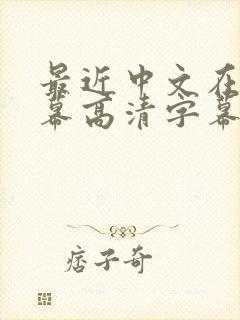 最近中文在
幕高清字幕
痞子奇